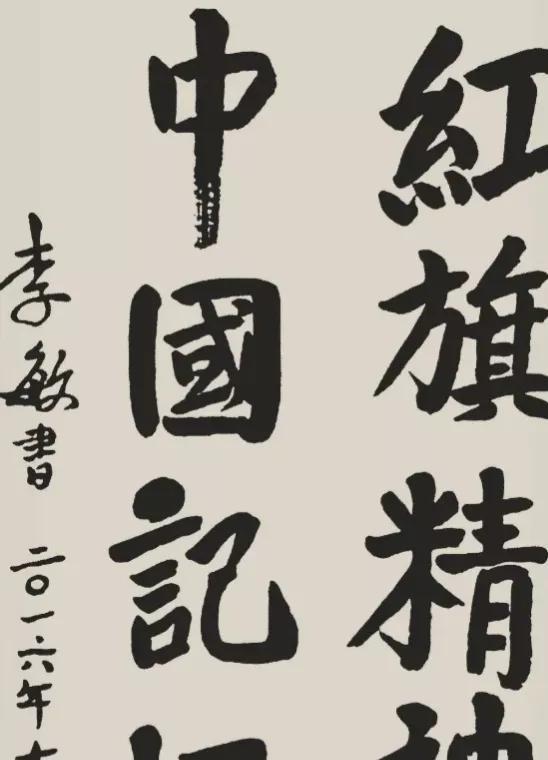 紅旗精神
中國記
李敏書 二〇一六年